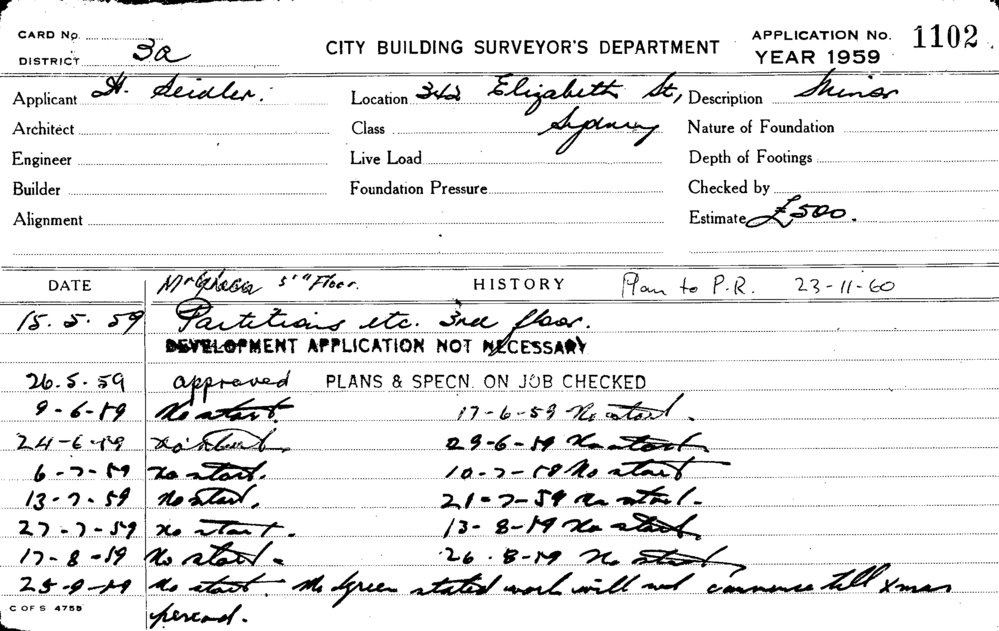 CARD No.
DISTRICT 3a
CITY BUILDING SURVEYOR'S DEPARTMENT
APPLICATION No. 1102
YEAR 1959
Applicant H. Seidler. Location 342 Elizabeth St, Description Minor
Architect Class Sydney Nature of Foundation
Engineer Live Load Depth of Footings
Builder Foundation Pressure Checked by
Alignment Estimate £500.
DATE 5th Floor. HISTORY Plan to P.R. 23-11-60
15.5.59 Partitions etc. 3rd floor.
DEVELOPMENT APPLICATION NOT NECESSARY
26.5.59 approved PLANS & SPECN. ON JOB CHECKED
9-6-59 No start. 17-6-59 No start.
24-6-59 No start. 29-6-59 No start.
6-7-59 No start. 10-7-59 No start
13-7-59 No start. 21-7-59 No start.
27-7-59 No start. 13-8-59 No start.
17-8-59 No start. 26.8-59 No start
25-9-59 No start. Mr Green stated work will not commence till Xmas
period.
C OF S 4755